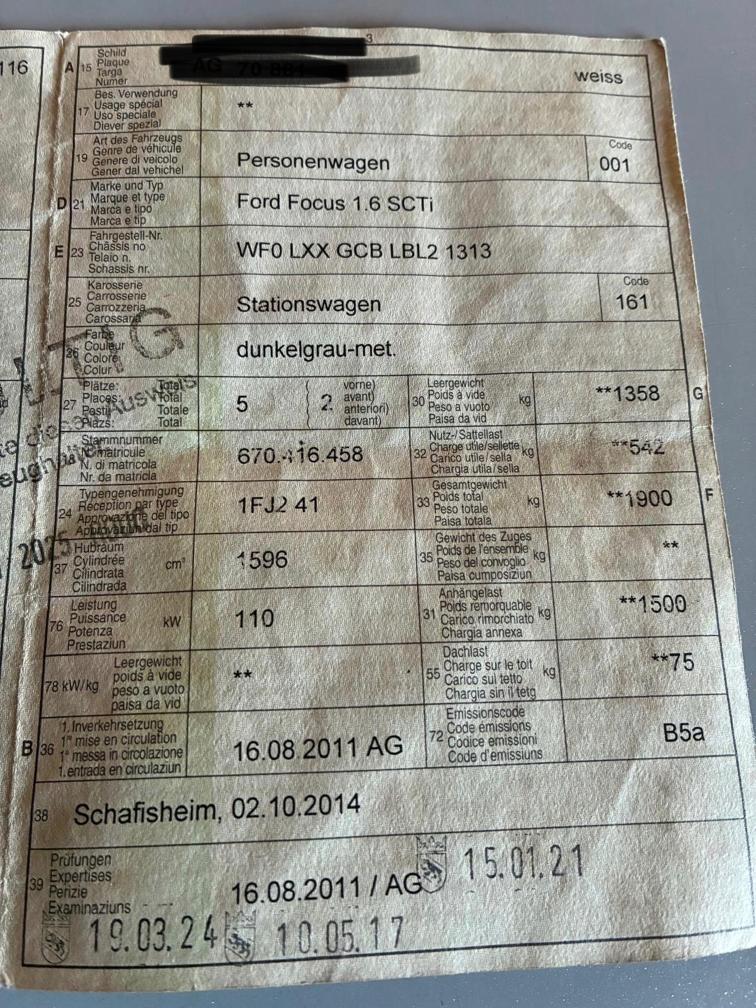 116
3
A 15 Schild
Plaque
Targa
Numer
weiss
17 Bes. Verwendung
Usage spécial
Uso speciale
Diever spezial
**
19 Art des Fahrzeugs
Genre de véhicule
Genere di veicolo
Gener dal vehichel
Personenwagen
Code
001
D 21 Marke und Typ
Marque et type
Marca e tipo
Marca e tip
Ford Focus 1.6 SCTi
E 23 Fahrgestell-Nr.
Châssis no
Telaio n.
Schassis nr.
WF0 LXX GCB LBL2 1313
25 Karosserie
Carrosserie
Carrozzeria
Carossaria
Stationswagen
Code
161
26 Farbe
Couleur
Colore
Colur
dunkelgrau-met.
27 Plätze: Total
Places: Total
Posti: Totale
Plazs: Total
5
( 2
vorne)
avant)
anteriori)
davant)
30 Leergewicht
Poids à vide
Peso a vuoto
Paisa da vid
kg
**1358
G
Stammnummer
N° matricule
N. di matricola
Nr. da matricla
670.416.458
32 Nutz-/Sattellast
Charge utile/sellette
Carico utile/sella
Chargia utila/sella
kg
**542
24 Typengenehmigung
Réception par type
Approvazione del tipo
Approvaziun dal tip
1FJ2 41
33 Gesamtgewicht
Poids total
Peso totale
Paisa totala
kg
**1900
F
2025
37 Hubraum
Cylindrée
Cilindrata
Cilindrada
cm³
1596
35 Gewicht des Zuges
Poids de l'ensemble
Peso del convoglio
Paisa cumposiziun
kg
**
76 Leistung
Puissance
Potenza
Prestaziun
kW
110
31 Anhängelast
Poids remorquable
Carico rimorchiato
Chargia annexa
kg
**1500
78 kW/kg
Leergewicht
poids à vide
peso a vuoto
paisa da vid
**
55 Dachlast
Charge sur le toit
Carico sul tetto
Chargia sin il tetg
kg
**75
B 36 1. Inverkehrsetzung
1re mise en circulation
1a messa in circolazione
1. entrada en circulaziun
16.08.2011 AG
72 Emissionscode
Code émissions
Codice emissioni
Code d'emissiuns
B5a
38 Schafisheim, 02.10.2014
39 Prüfungen
Expertises
Perizie
Examinaziuns
16.08.2011 / AG
15.01.21
19.03.24
10.05.17